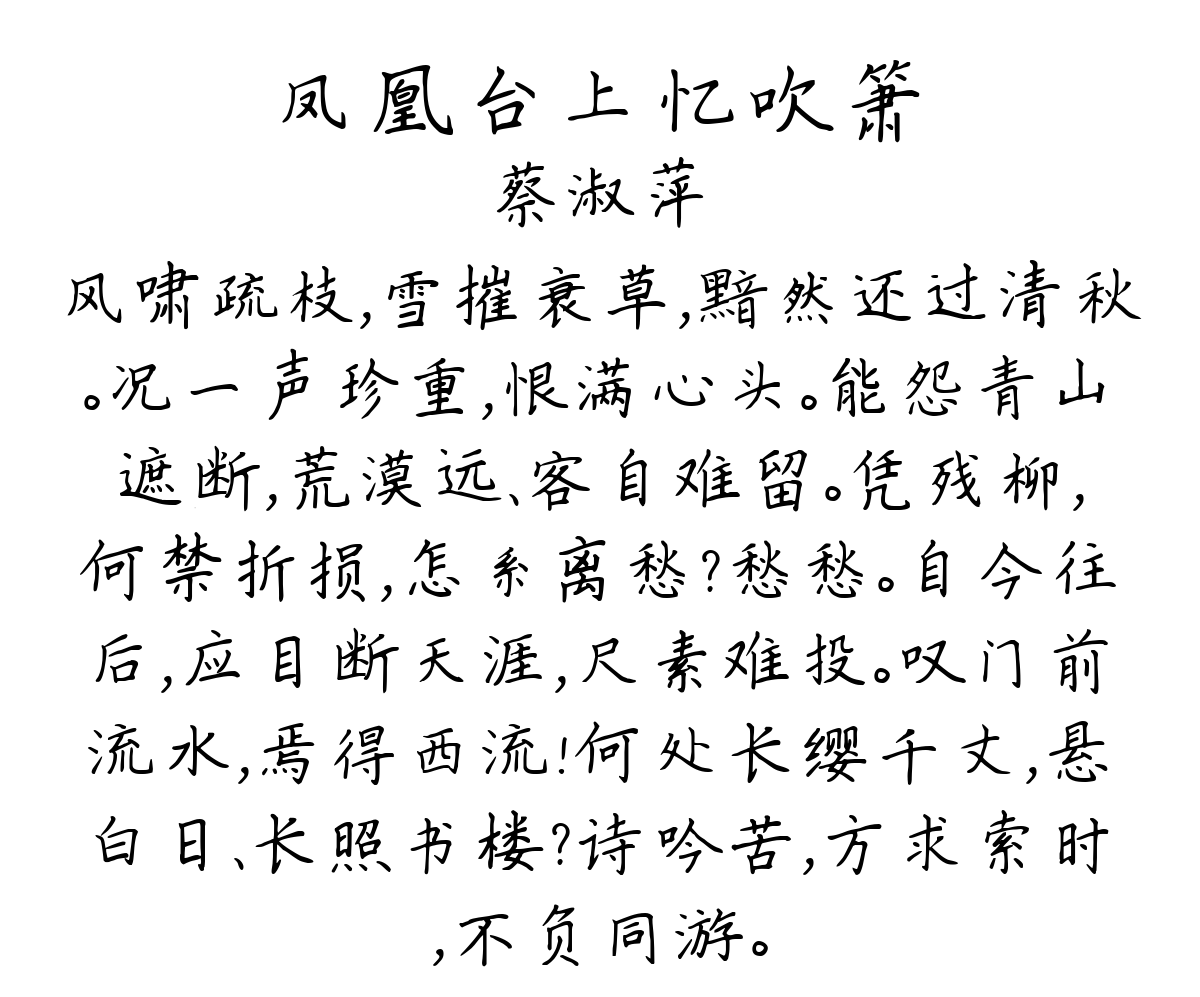 凤凰台上忆吹箫
蔡淑萍
风啸疏枝,雪摧衰草,黯然还过清秋
。况一声珍重,恨满心头。能怨青山
遮断,荒漠远、客自难留。凭残柳,
何禁折损,怎系离愁?愁愁。自今往
后,应目断天涯,尺素难投。叹门前
流水,焉得西流!何处长缨千丈,悬
白日、长照书楼?诗吟苦,方求索时
,不负同游。